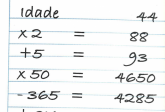 Idade 44
x2 = 88
+5 = 93
x50 = 4650
-365 = 4285